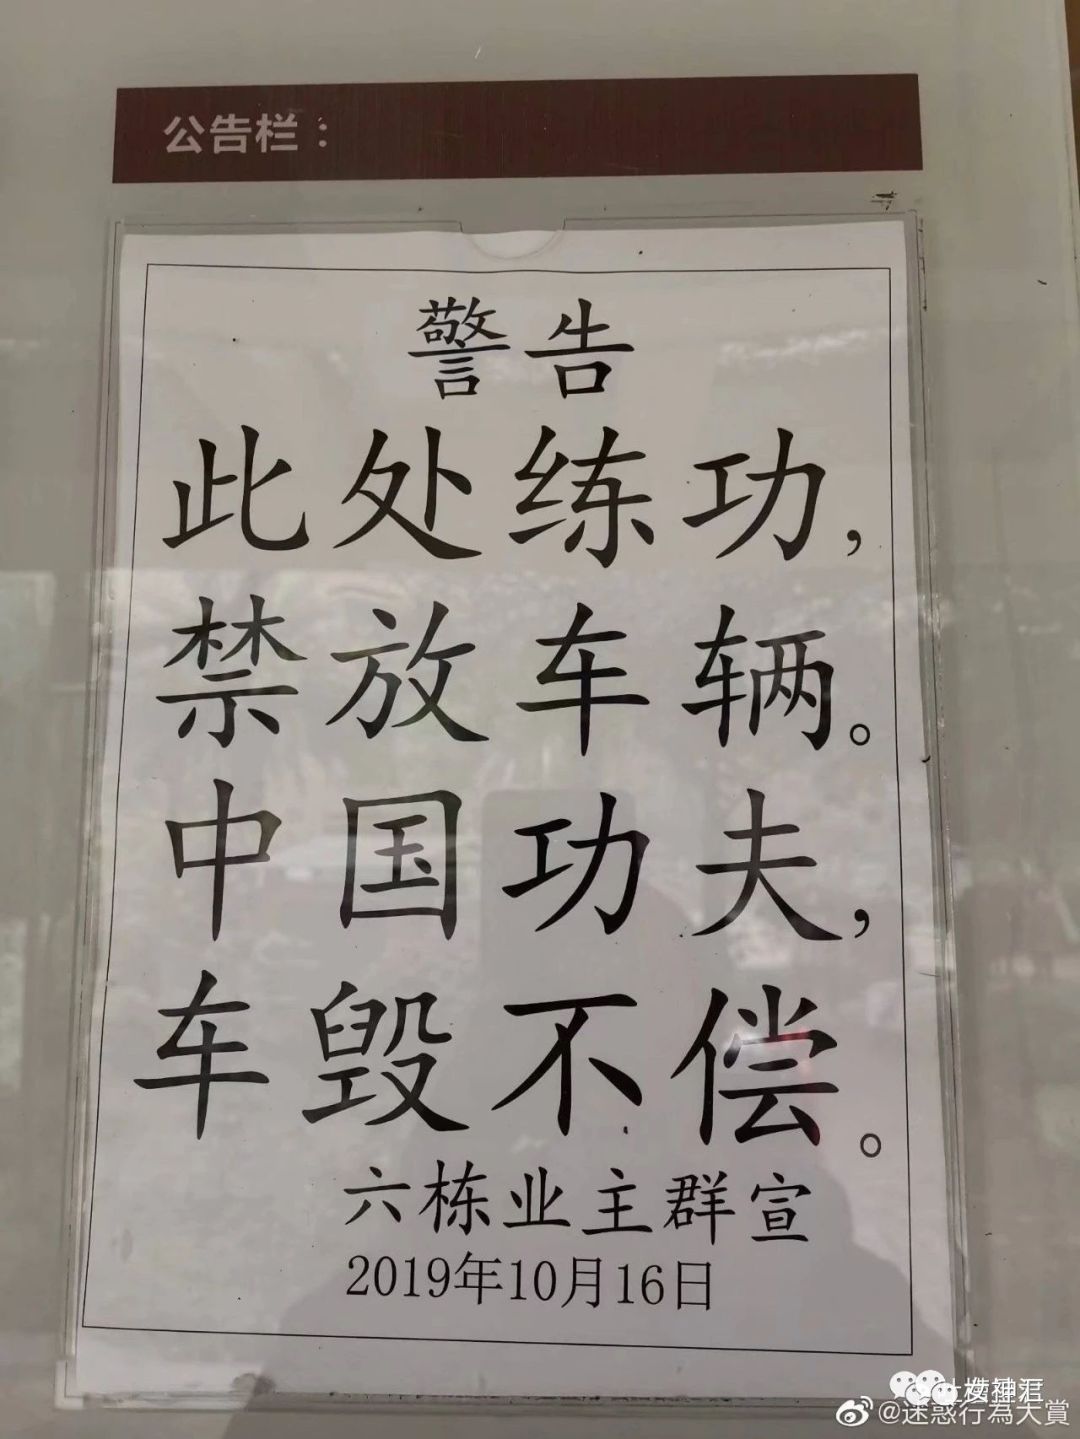 公告栏：
警告
此处练功，
禁放车辆。
中国功夫，
车毁不偿。
六栋业主群宣
2019年10月16日
@迷惑行為大赏